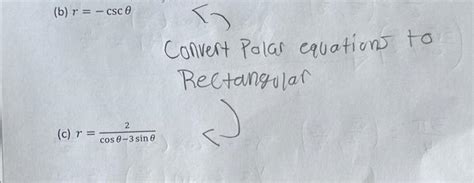 (b) r = − csc θ
Convert Polar equations to
Rectangular
(c) r = 2 / (cos θ−3 sin θ)